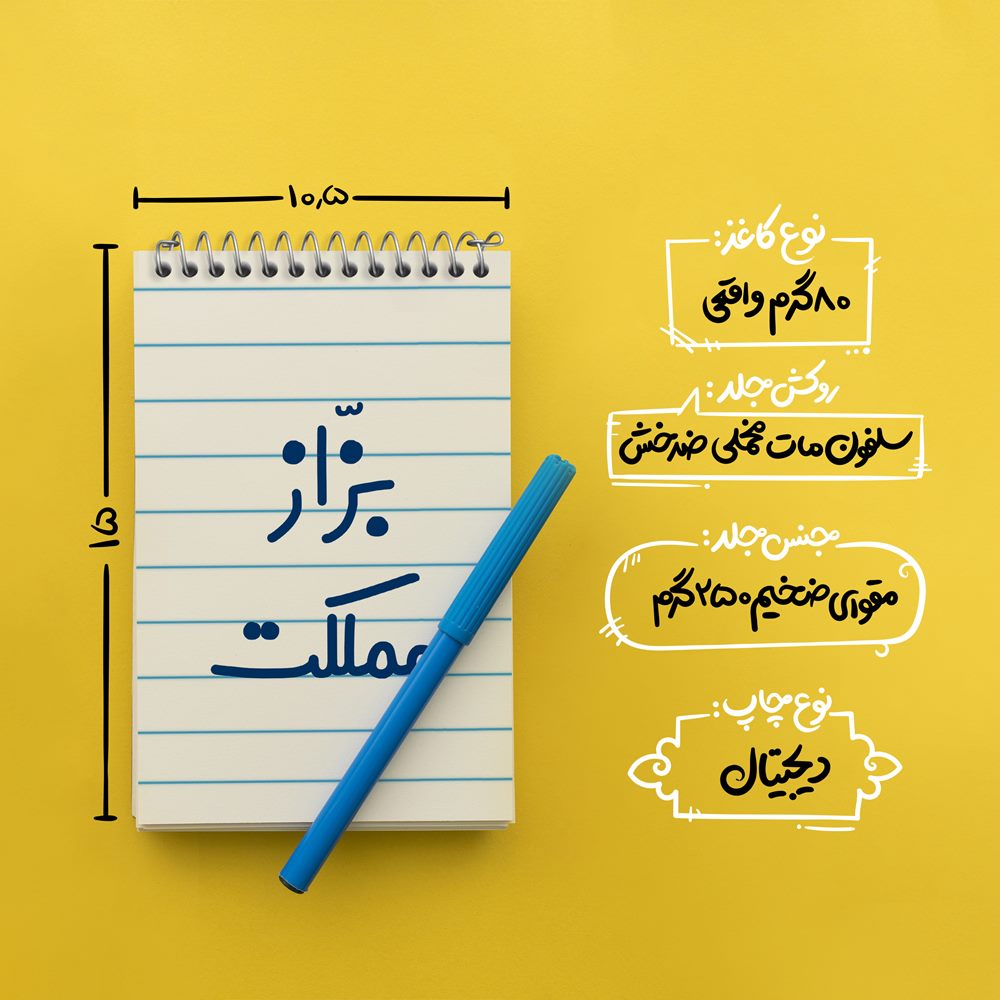 ۱۰,۵
۱۵
بزّاز
مملکت
نوع کاغذ:
۸۰ گرم واقعی
روکش جلد:
سلفون مات مخملی ضدخش
جنس جلد:
مقوای ضخیم ۲۵۰ گرم
نوع چاپ:
دیجیتال